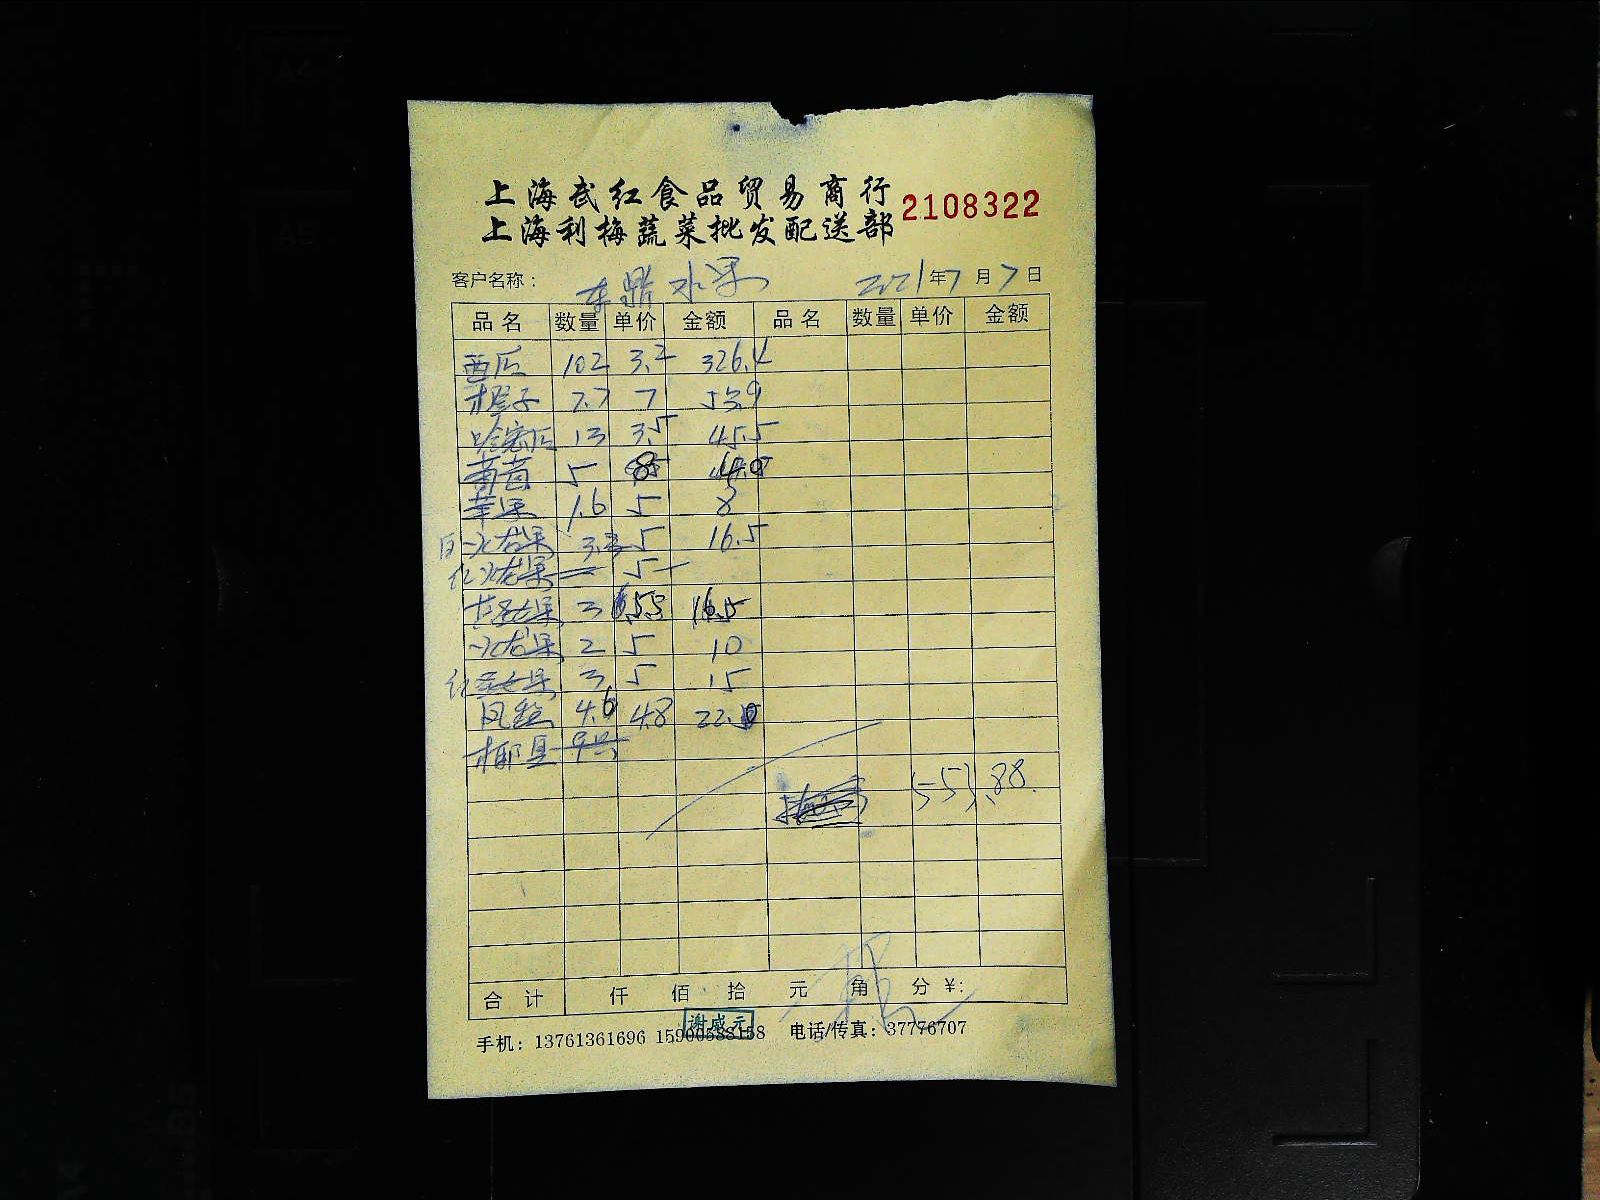 上海武红食品贸易商行
上海利梅蔬菜批发配送部
2108322
客户名称： 东鼎水果 2021年7月7日
品名 数量 单价 金额 品名 数量 单价 金额
西瓜 102 3.2 326.4
橙子 7.7 7 53.9
哈密瓜 13 3.5 45.5
葡萄 5 8 40
苹果 1.6 5 8
白火龙果 3.3 5 16.5
红火龙果 5
3 5.5 16.5
火龙果 2 5 10
红圣女果 3 5 15
凤梨 4.6 4.8 22.
椰果
553.88
合计 仟 佰 拾 元 角 分 ¥:
谢成元
手机：13761361696 15900588158 电话/传真：37776707